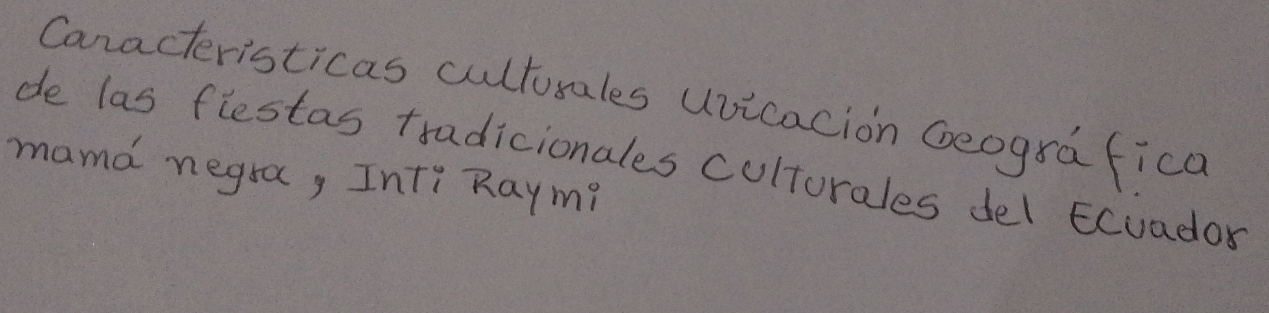 Caracteristicas culturales Uvicación Geográfica
de las fiestas tradicionales culturales del Ecuador
mamá negra, Inti Raymi